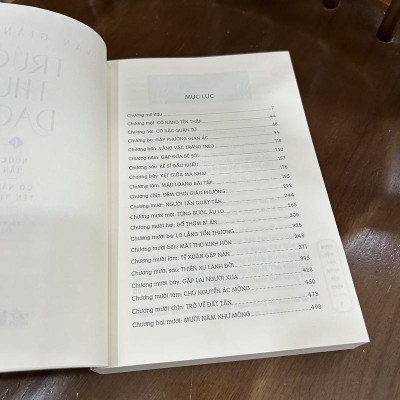 TRƯỜ
MỤC LỤC
Chương mở đầu 7
Chương một: CÓ NÀNG TÊN THẬP 44
Chương hai: CÓ BẬC QUÂN TỬ
Chương ba: GẶP PHƯỜNG GIAN ÁC
Chương bốn: VẰNG VẶC TRĂNG TREO 116
Chương năm: GẶP ĐỨA BÉ TỒI
Chương sáu: KẺ SĨ ĐẤU KHẨU 157
Chương bảy: KẸT GIỮA MA NHAI 176
Chương tám: MÁU LOANG BÃI TẬP 195
Chương chín: ĐÊM CHƠI GIÁO PHƯỜNG 222
Chương mười: NGƯỜI TẦN QUẤY TẤN 244
Chương mười một: TỪNG BƯỚC ÂU LO 265
Chương mười hai: GỖ THƠM BÍ ẨN 300
Chương mười ba: LO LẮNG TÔN THƯƠNG 326
Chương mười bốn: MẬT THƯ KINH HỒN 348
Chương mười lăm: TỀ XUÂN GẶP NẠN 371
Chương mười sáu: THIÊN XU LÃNH ĐỜI 395
Chương mười bảy: GẶP LẠI NGƯỜI XƯA 428
Chương mười tám: CHÚ NGUYỀN ÁC MỘNG 450
Chương mười chín: TRỞ VỀ ĐẤT TẤN 475
Chương hai mươi: MƯỜI NĂM NHƯ MỘNG 498